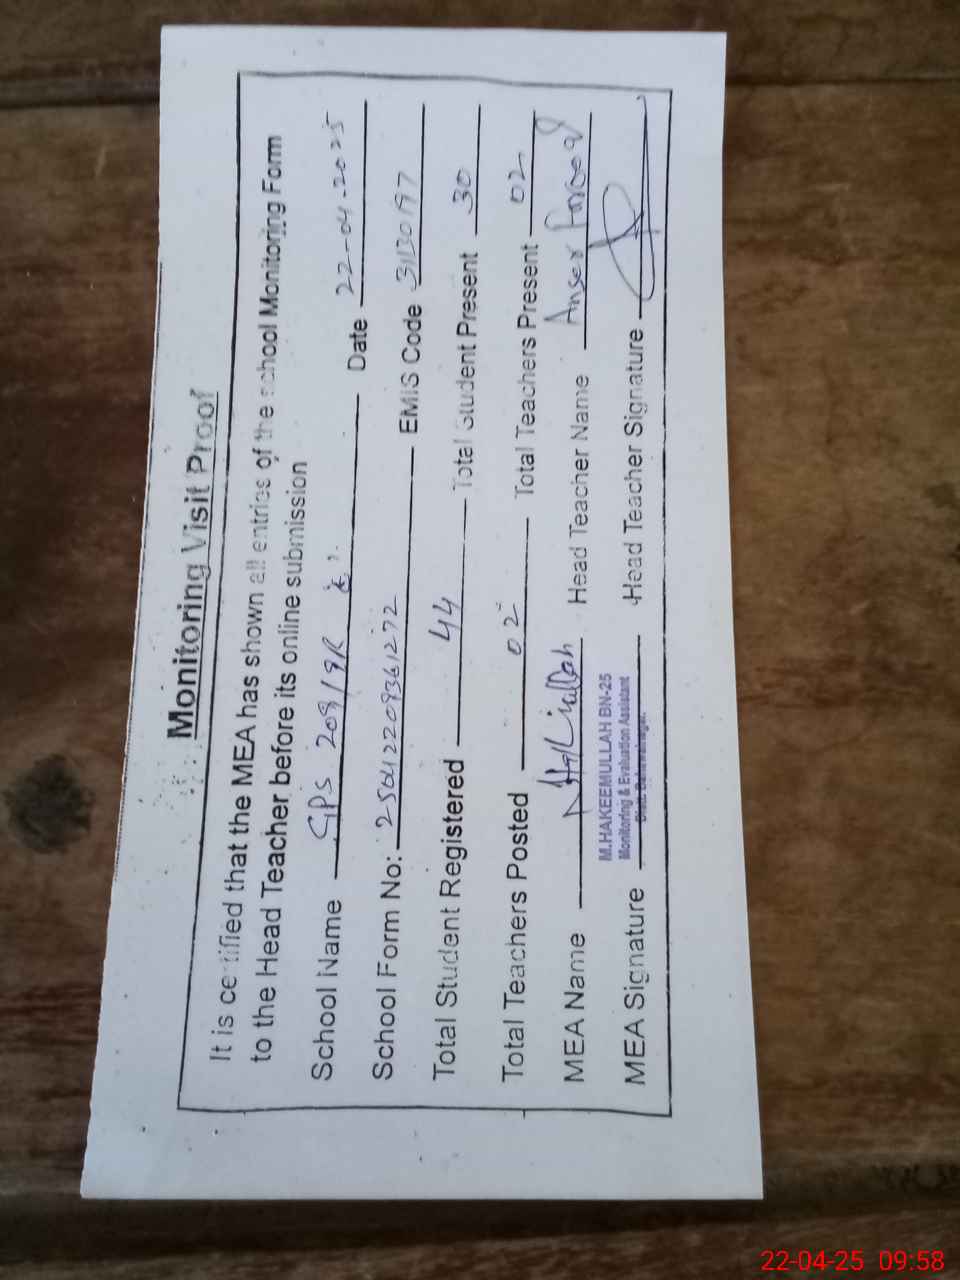 Monitoring Visit Proof
It is certified that the MEA has shown all entries of the school Monitoring Form
to the Head Teacher before its online submission
School Name GPS 209/9R Date 22-04-2025
School Form No: 25042209361272 EMIS Code 31130197
Total Student Registered 44 Total Student Present 30
Total Teachers Posted 02 Total Teachers Present 02
MEA Name Head Teacher Name Anser Fareed
M.HAKEEMULLAH BN-25
Monitoring & Evaluation Assistant
Distt. Bahawalnagar.
MEA Signature Head Teacher Signature
22-04-25 09:58